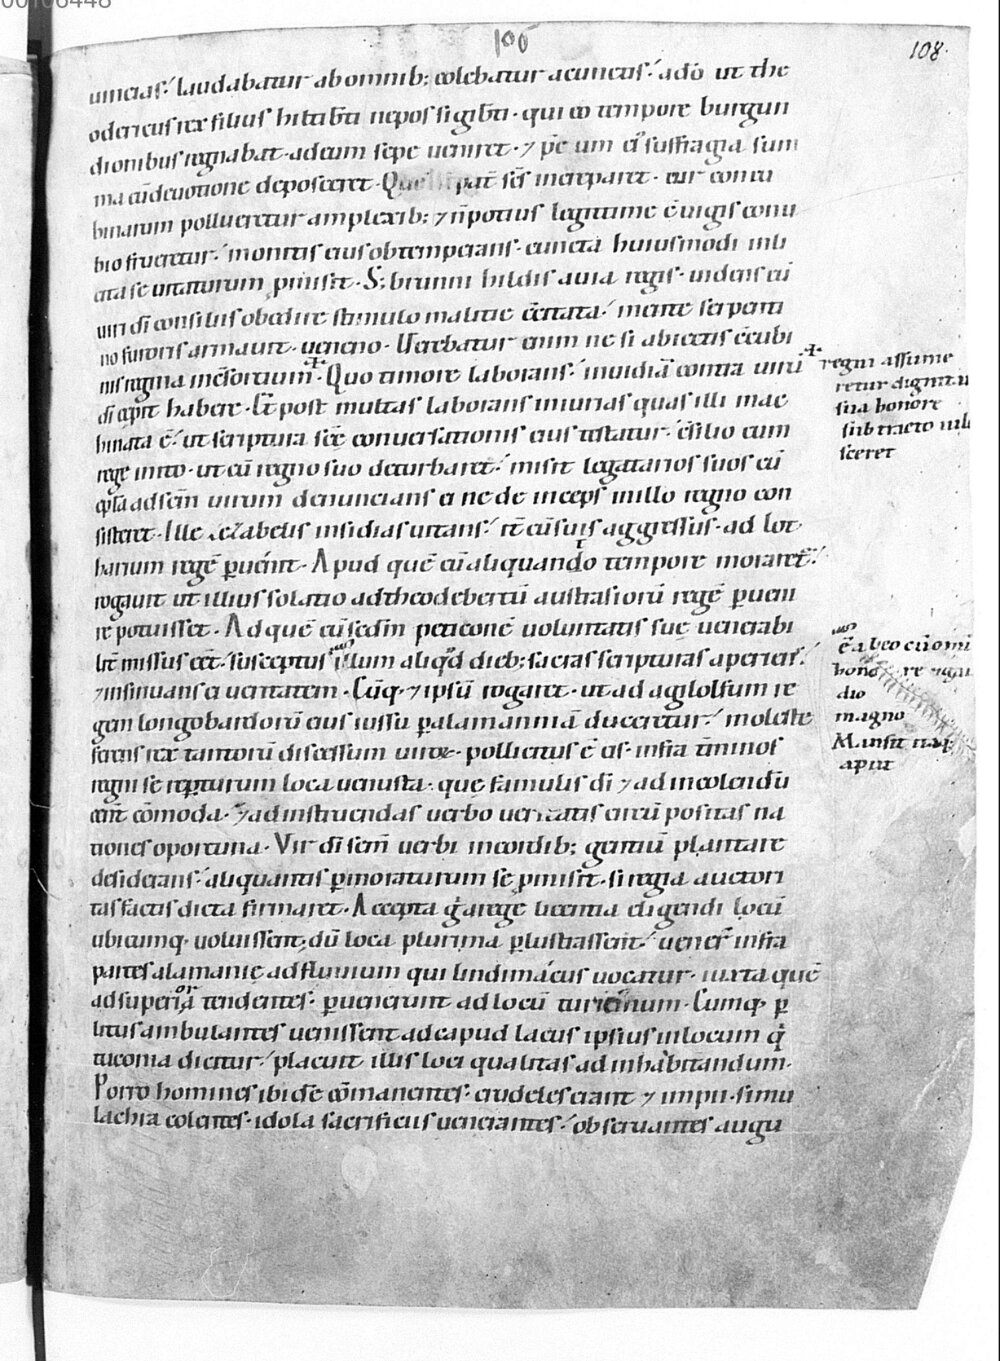 106
108.
uincias. laudabatur ab omnib; colebatur a cunctis. adō ut the
odericus rex filius hiltibti nepos sigibti. qui eo tempore burgun
dionibus regnabat. ad eum sepe ueniret. ⁊ p̄e um ei' suffragia sum
ma cū deuotione deposceret. Quē pat̄ sc̄s increparet. cur concu
binarum pollueretur amplexib; ⁊ n̄ potius legitime c̄iugis conu
bio frueretur. monitis eius obtemperans. cuncta huiusmodi inli
cita se uitaturum p̄misit. S; brunnihildis auia regis. uidens eū
uiri dī consiliis obedire stimulo malitie c̄citata. mente serpenti
no furoris armauit ueneno. Uerebatur enim ne si abiectis c̄cubi
nis regina in c̄sortium. Quo timore laborans. inuidiā contra uirū
dī cepit habere. Et post multas laborans iniurias quas illi mac
hinata ē. ut scriptura sc̄e conuersationis eius testatur. c̄silio cum
rege inito. ut eū regno suo deturbaret. misit legatarios suos cū
ep̄la ad sc̄m uirum denuncians ei ne deinceps in illo regno con
sisteret. Ille iezabelis insidias uitans. it̄ cū suis aggressus. ad lot
harium regē p̄uēnit. Apud quē cū aliquando tempore moraret'.
rogauit ut illius solatio ad theodebertū austrasiorū regē p̄ueni
re potuisset. Ad quē cū s̄edm peticionē uoluntatis sue uenerabi
lit̄ missus eēt. susceptus illum aliqd dieb; sacras scripturas aperier.
⁊ insinuans ei ueritatem. Cūq; ⁊ ipsū rogaret. ut ad agilolfum re
gem longobardorū eius iussu p̄ alamanniā duceretur. moleste
ferens rex tantorū discessum uirōꝝ. pollicitus ē eis. infra t̄minos
regni se rep̄turum loca uenusta. que famulis dī ⁊ ad incolendū
eēnt c̄omoda. ⁊ ad instruendas uerbo ueritatis circū positas na
tiones oportuna. Vir dī sem̄ uerbi in cordib; gentiū plantare
desiderans. aliquantis p̄moraturum se p̄misit. si regia auctori
tas factis dicta firmaret. Accepta ḡ a rege licentia eligendi locū
ubicumq; uoluissent. dū loca plurima p̄lustrassent. uener̄ infra
partes alamanie ad fluuium qui lindimacus uocatur. iuxta quē
ad superiora tendentes. p̄uenerunt ad locū turicinum. Cumq; p̄
litus ambulantes uenissent ad capud lacus ipsius in locum q̄
tuconia dicitur. placuit illis loci qualitas ad inhabitandum.
Porro homines ibidē c̄omanentes. crudeles erant ⁊ impii. simu
lachra colentes. idola sacrificiis uenerantes. obseruantes augu
regni assume
retur dignitati
sua honore
subtracto uile
sceret
ē ab eo cū omi
bono
dio
magno
Mansit itaq;
aput